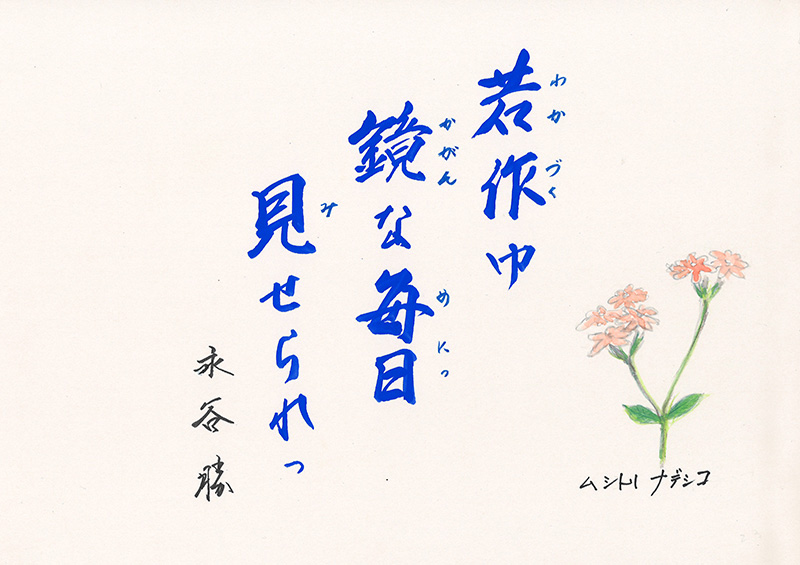 わかづく
若作ゆ
かがん めにっ
鏡な毎日
み
見せられっ
永谷勝
ムシトリ ナデシコ